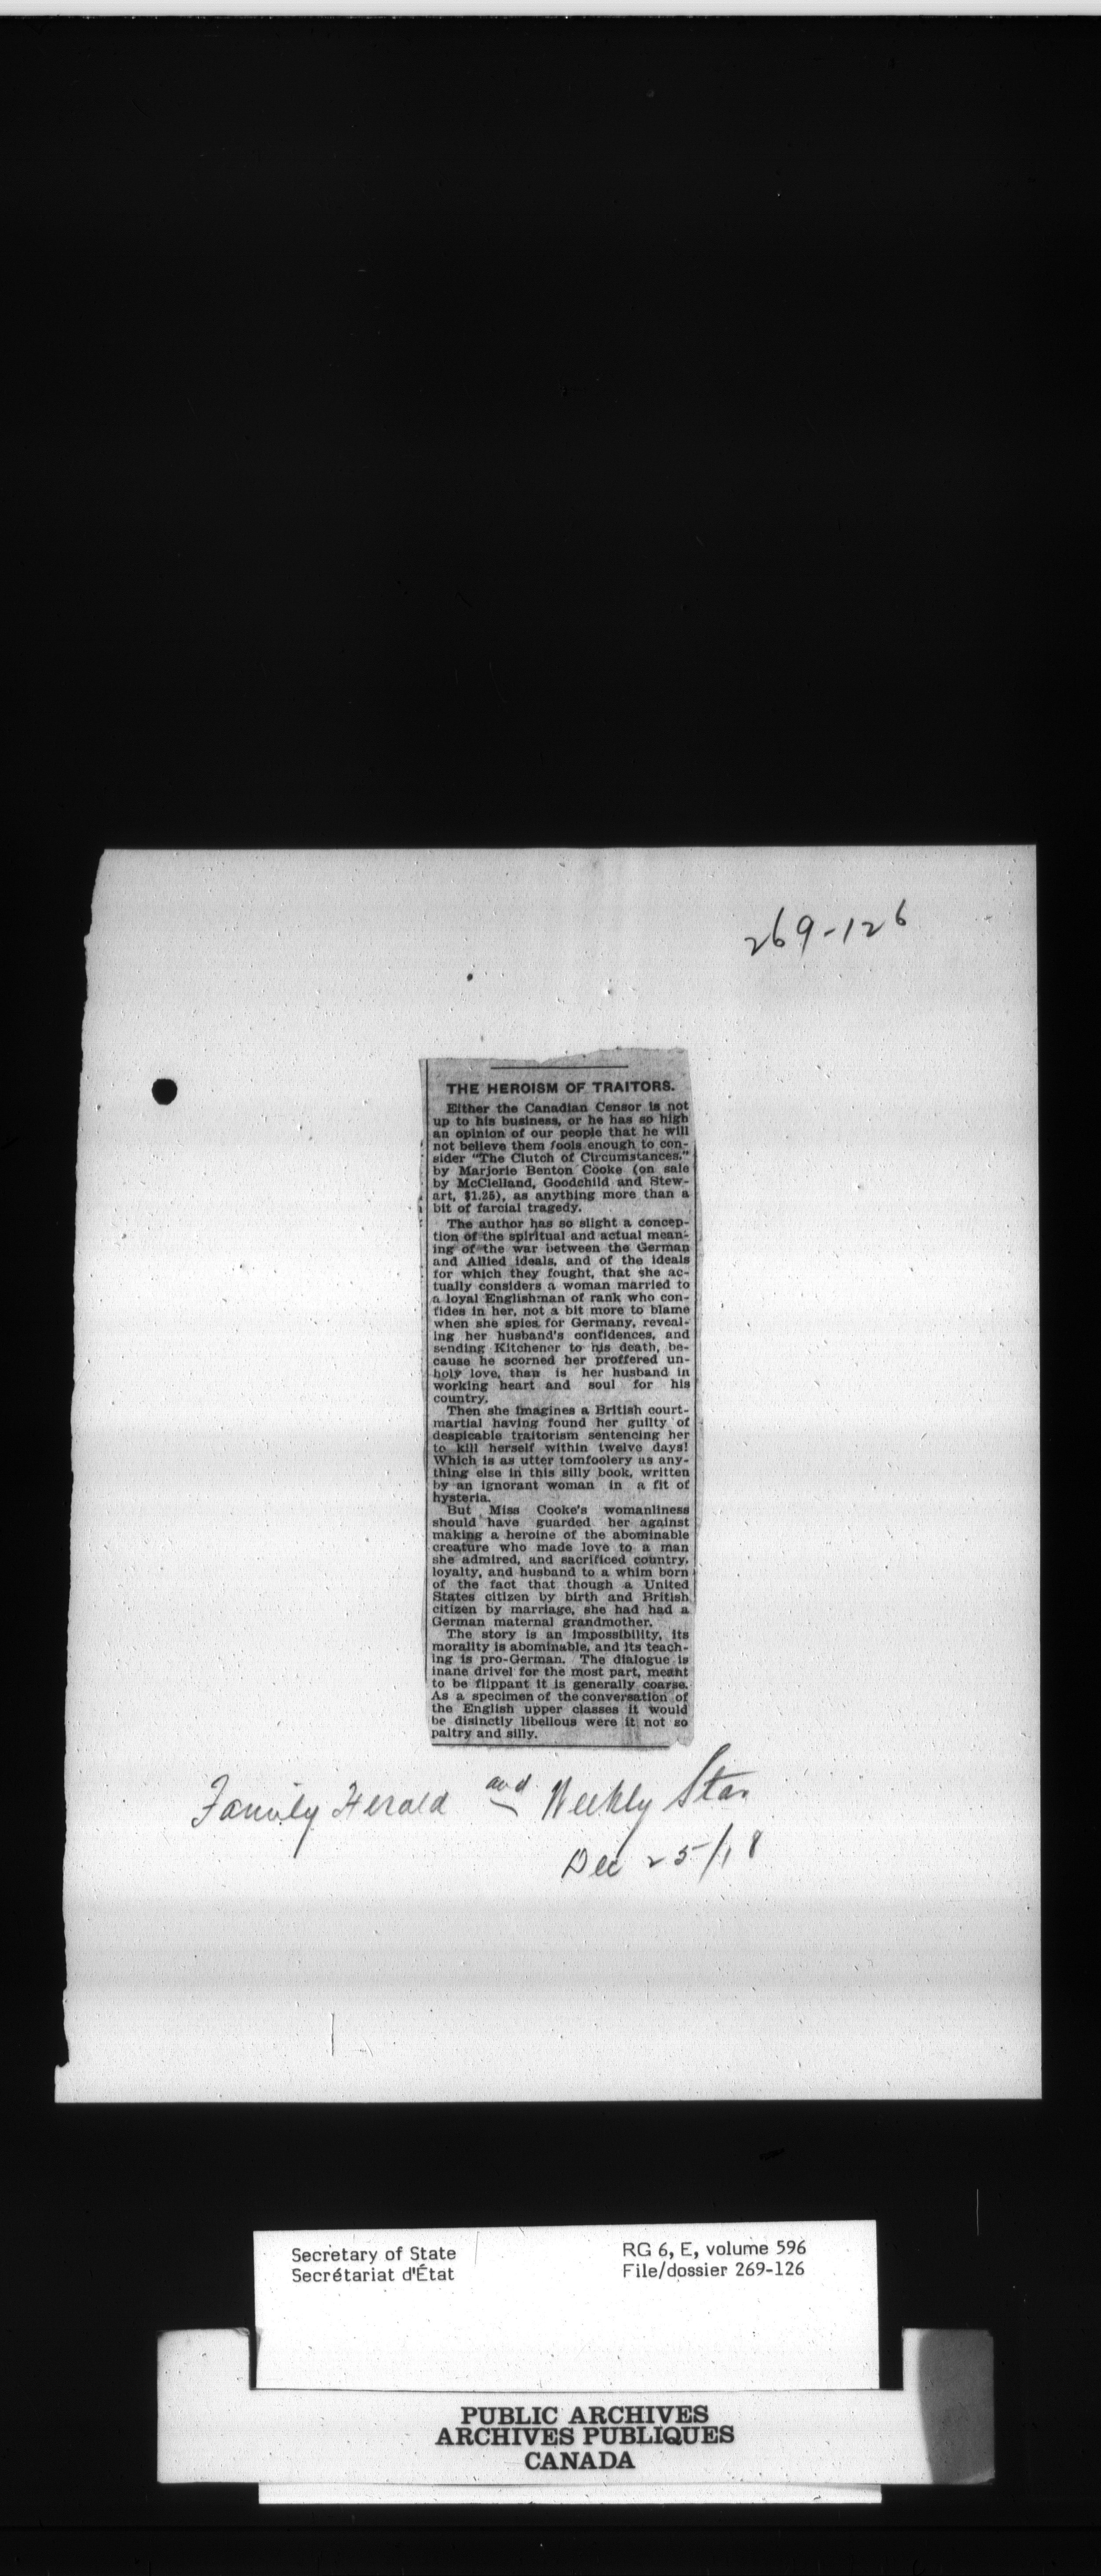 269-126
THE HEROISM OF TRAITORS.
Either the Canadian Censor is not
up to his business, or he has so high
an opinion of our people that he will
not believe them fools enough to con-
sider "The Clutch of Circumstances."
by Marjorie Benton Cooke (on sale
by McClelland, Goodchild and Stew-
art, $1.25), as anything more than a
bit of farcial tragedy.
The author has so slight a concep-
tion of the spiritual and actual mean-
ing of the war between the German
and Allied ideals, and of the ideals
for which they fought, that she ac-
tually considers a woman married to
a loyal Englishman of rank who con-
fides in her, not a bit more to blame
when she spies for Germany, reveal-
ing her husband's confidences, and
sending Kitchener to his death, be-
cause he scorned her proffered un-
holy love, than is her husband in
working heart and soul for his
country.
Then she imagines a British court-
martial having found her guilty of
despicable traitorism sentencing her
to kill herself within twelve days!
Which is as utter tomfoolery as any-
thing else in this silly book, written
by an ignorant woman in a fit of
hysteria.
But Miss Cooke's womanliness
should have guarded her against
making a heroine of the abominable
creature who made love to a man
she admired, and sacrificed country,
loyalty, and husband to a whim born
of the fact that though a United
States citizen by birth and British
citizen by marriage, she had had a
German maternal grandmother.
The story is an impossibility, its
morality is abominable, and its teach-
ing is pro-German. The dialogue is
inane drivel for the most part, meant
to be flippant it is generally coarse.
As a specimen of the conversation of
the English upper classes it would
be disinctly libellous were it not so
paltry and silly.
Family Herald and Weekly Star
Dec 25/18
Secretary of State
Secrétariat d'État
RG 6, E, volume 596
File/dossier 269-126
PUBLIC ARCHIVES
ARCHIVES PUBLIQUES
CANADA